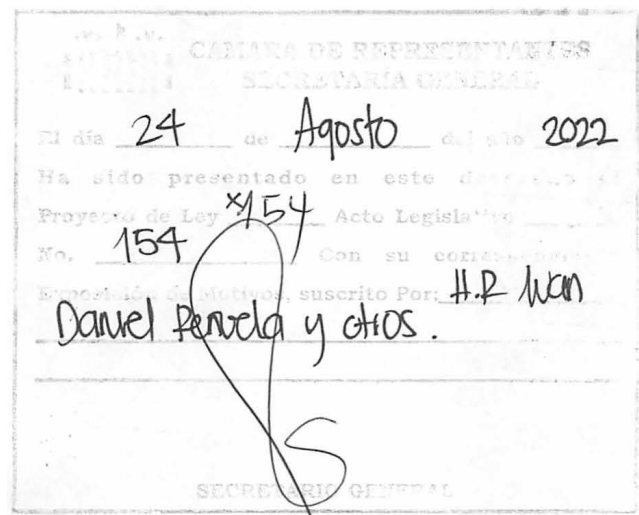 CAMARA DE REPRESENTANTES
SECRETARÍA GENERAL
El día 24 de Agosto del año 2022
Ha sido presentado en este despacho
Proyecto de Ley x154 Acto Legislativo
No. 154 Con su correspondiente
Exposición de Motivos, suscrito Por: H.R
Daniel y otros.
SECRETARIO GENERAL